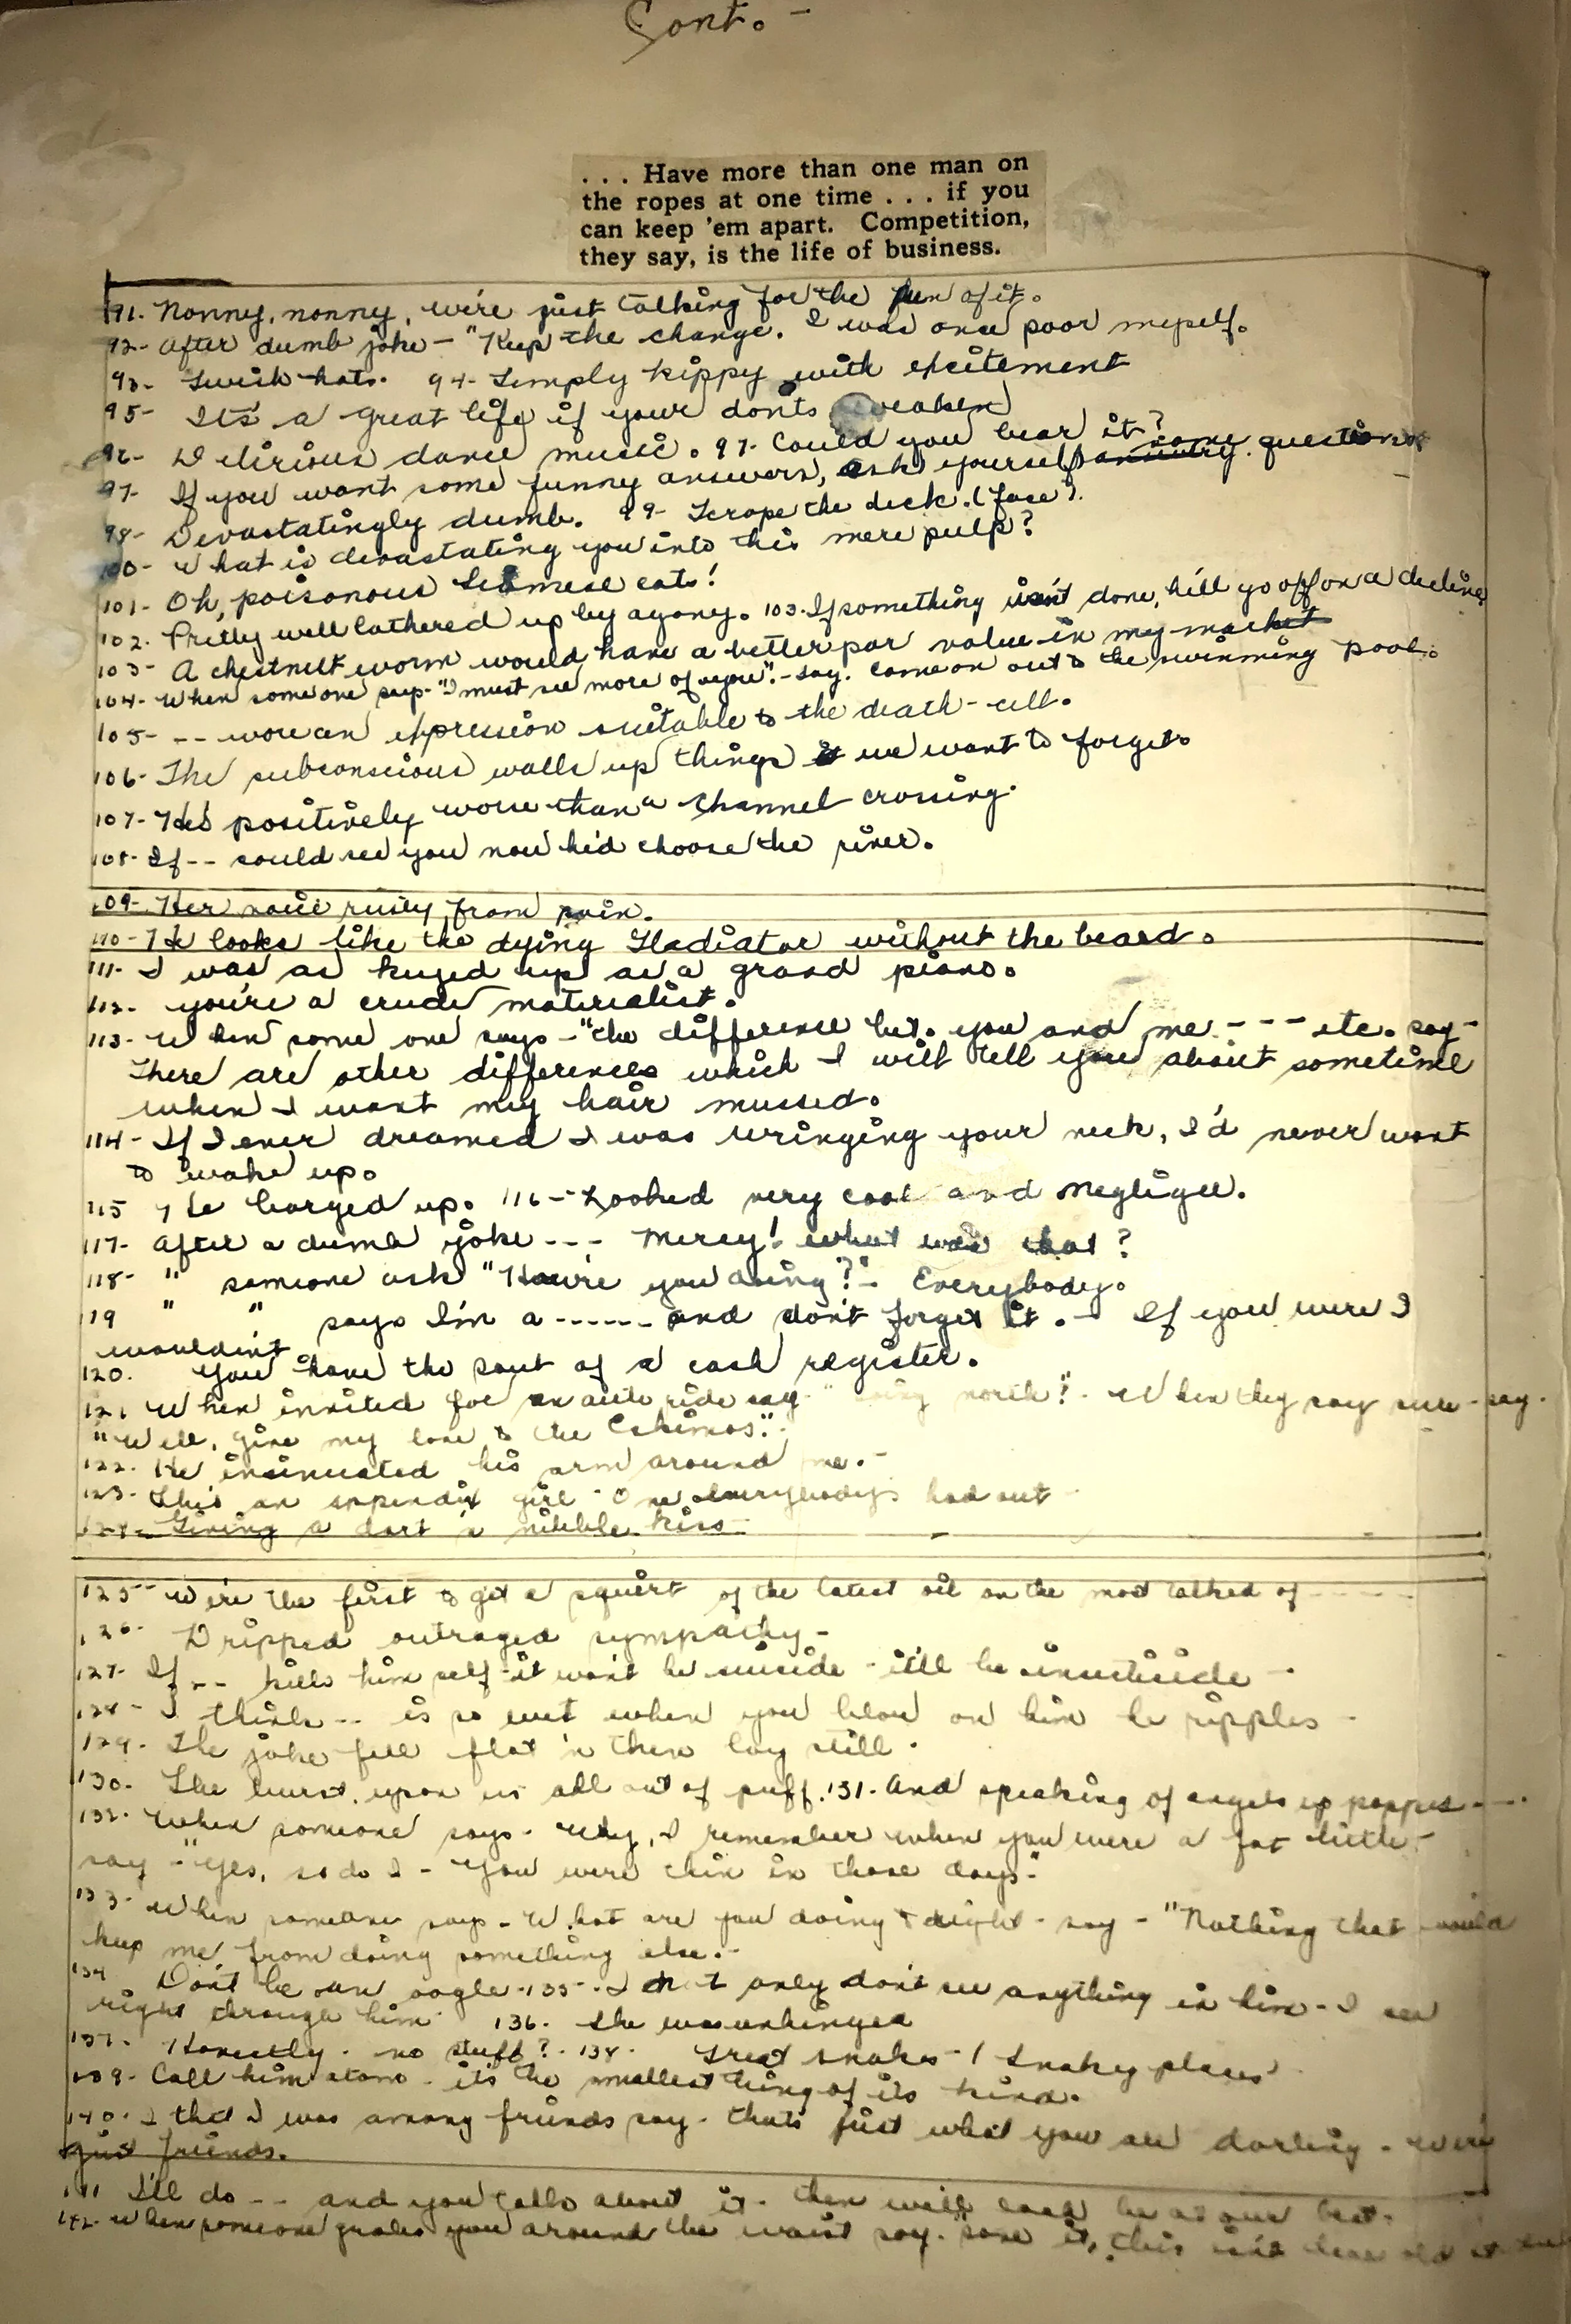 Cont. -
. . . Have more than one man on
the ropes at one time . . . if you
can keep 'em apart. Competition,
they say, is the life of business.
91- Nonny, nonny, we're just talking for the fun of it.
92- After dumb joke - "Keep the change. I was once poor myself.
93- Swish hats. 94- Simply kippy with excitement
95- It's a great life if your don'ts weaken
96- Delirious dance music. 97- Could you bear it?
97- If you want some funny answers, ask yourself some questions
98- Devastatingly dumb. 99- Scrape the deck. (face).
100- What is devastating you into this mere pulp?
101- Oh, poisonous Siamese cats!
102. Pretty well lathered up by agony. 103- If something isn't done, he'll go off on a decline
103- A chestnut worm would have a better par value in my market
104- When someone says - "I must see more of you". - say. Come on out to the swimming pool.
105- -- wore an expression suitable to the death-cell.
106- The subconscious walls up things we want to forget.
107- He's positively worse than a channel crossing.
108- If -- could see you now he'd choose the river.
109- Her voice rusty from pain.
110- He looks like the dying Gladiator without the beard.
111- I was as keyed up as a grand piano.
112- you're a crude materialist.
113- When some one says - "the difference bet. you and me - - - etc. say -
There are other differences which I will tell you about sometime
when I want my hair mussed.
114- If I ever dreamed I was wringing your neck, I'd never want
to wake up.
115 He barged up. 116- Looked very cool and negligee.
117- After a dumb joke - - - Mercy! what was that?
118- " someone ask "How're you doing?" - Everybody.
119 " " says I'm a ------ and don't forget it. - If you were I
wouldn't
120. You have the soul of a cash register.
121 When invited for an auto ride say - " going north?" - When they say sure - say.
"Well, give my love to the Eskimos".
122. He insinuated his arm around me. -
123- She's an appendix girl - One everybody's had out -
124- Giving a dart 'a nibble kiss -
125- We're the first to get a squirt of the latest oil on the most talked of -----
126- Dripped outraged sympathy -
127- If -- kills himself - it won't be suicide - it'll be insecticide -
128- I think -- is so wet when you blow on him he ripples -
129- The joke fell flat 'n then lay still.
130- She burst upon us all out of puff. 131- And speaking of angels up popped ----
132- When someone says - Why, I remember when you were a fat little -
say - "Yes, so do I - You were thin in those days -"
133- When someone says - What are you doing tonight - say - "Nothing that would
keep me from doing something else. -
134 Don't be an oogle - 135 - I not only don't see anything in him - I see
right through him 136. She was unhinged
137. Honestly - no stuff? - 138- Great snakes - / Snaky places
139- Call him atom - it's the smallest thing of its kind.
140. I that I was among friends say - that's just what you are darling - we're
just friends.
141 I'll do -- and you talk about it - then we'll each be at our best.
142- When someone grabs you around the waist say - "